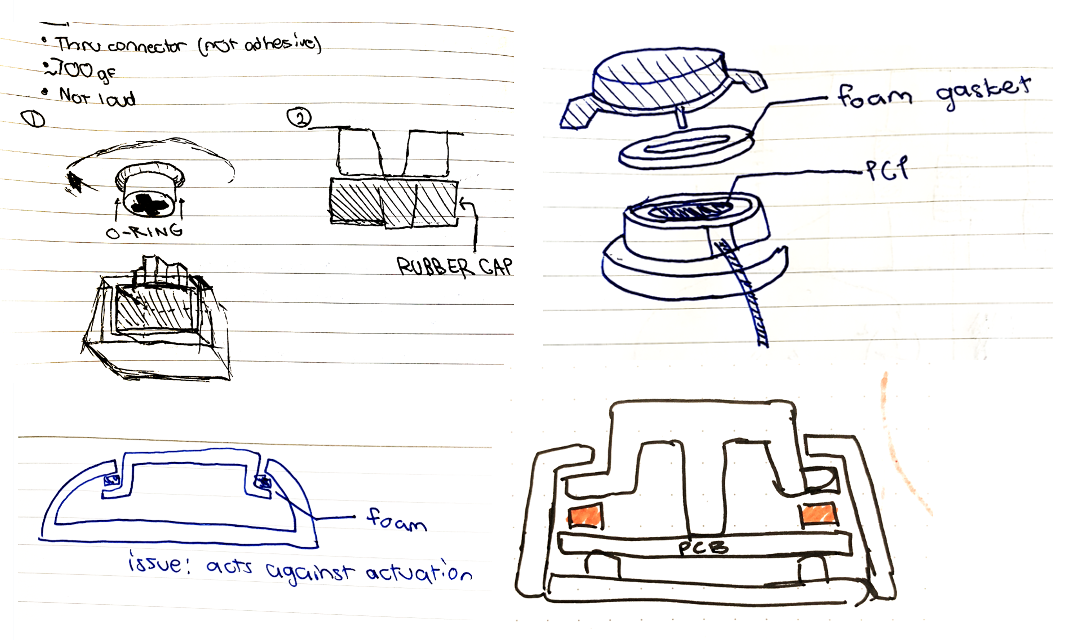 • Thru connector (not adhesive)
• ~700 gf
• Not loud
①
②
O-RING
RUBBER CAP
foam gasket
PCP
foam
issue: acts against actuation
PCB